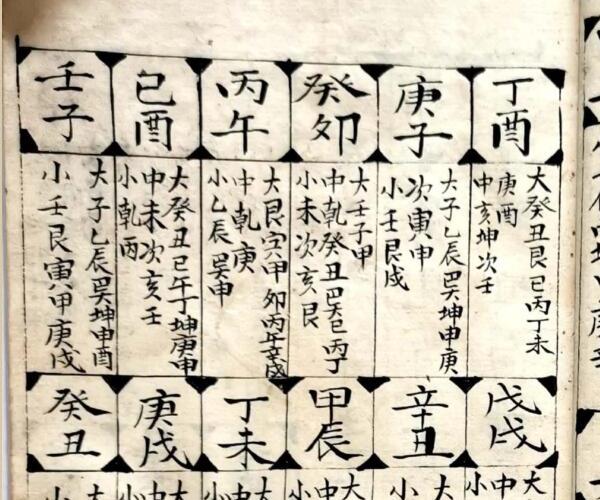 丁酉
大癸丑艮巳丙丁未
庚酉
中亥坤次壬
庚子
大子乙辰巽坤申庚
次寅甲
小壬艮戌
癸卯
大壬子甲
中乾癸丑巽巳丙丁
小未次亥艮
丙午
大艮寅甲卯丙午辛戌
中乾庚
小乙辰巽申
己酉
大癸丑巳午丁坤庚申
中未次亥壬
小乾丙
壬子
大子乙辰巽坤申酉
小壬艮寅甲庚戌
戊戌
大
中
小
辛丑
大
小
甲辰
大
中
小
丁未
大
中
小
庚戌
大
中
小
癸丑
大
小